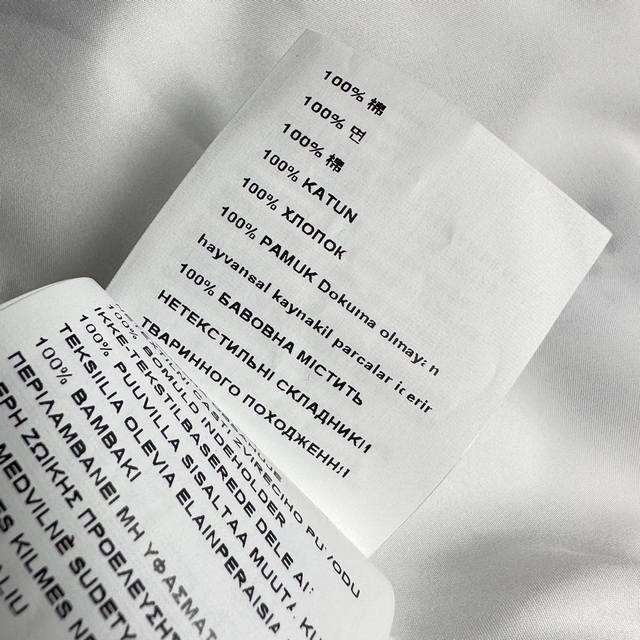 100% 棉
100% 면
100% 棉
100% KATUN
100% ХЛОПОК
100% PAMUK Dokuma olmayan
hayvansal kaynakil parcalar icerir
100% БАВОВНА МІСТИТЬ
НЕТЕКСТИЛЬНІ СКЛАДНИКИ
ТВАРИННОГО ПОХОДЖЕННЯ
100% BOMULD INDEHOLDER
IKKE-TEKSTILBASEREDE DELE AF
100% PUUVILLA SISALTAA MUUTA KU
TEKSIILIA OLEVIA ELAINPERAISIA
100% BAMBAKI
ΠΕΡΙΛΑΜΒΑΝΕΙ ΜΗ ΥΦΑΣΜΑΤ
ΕΡΗ ΖΩΙΚΗΣ ΠΡΟΕΛΕΥΣΗΣ
MEDVILNĖ SUDETY
ES KILMES NE
ALIU